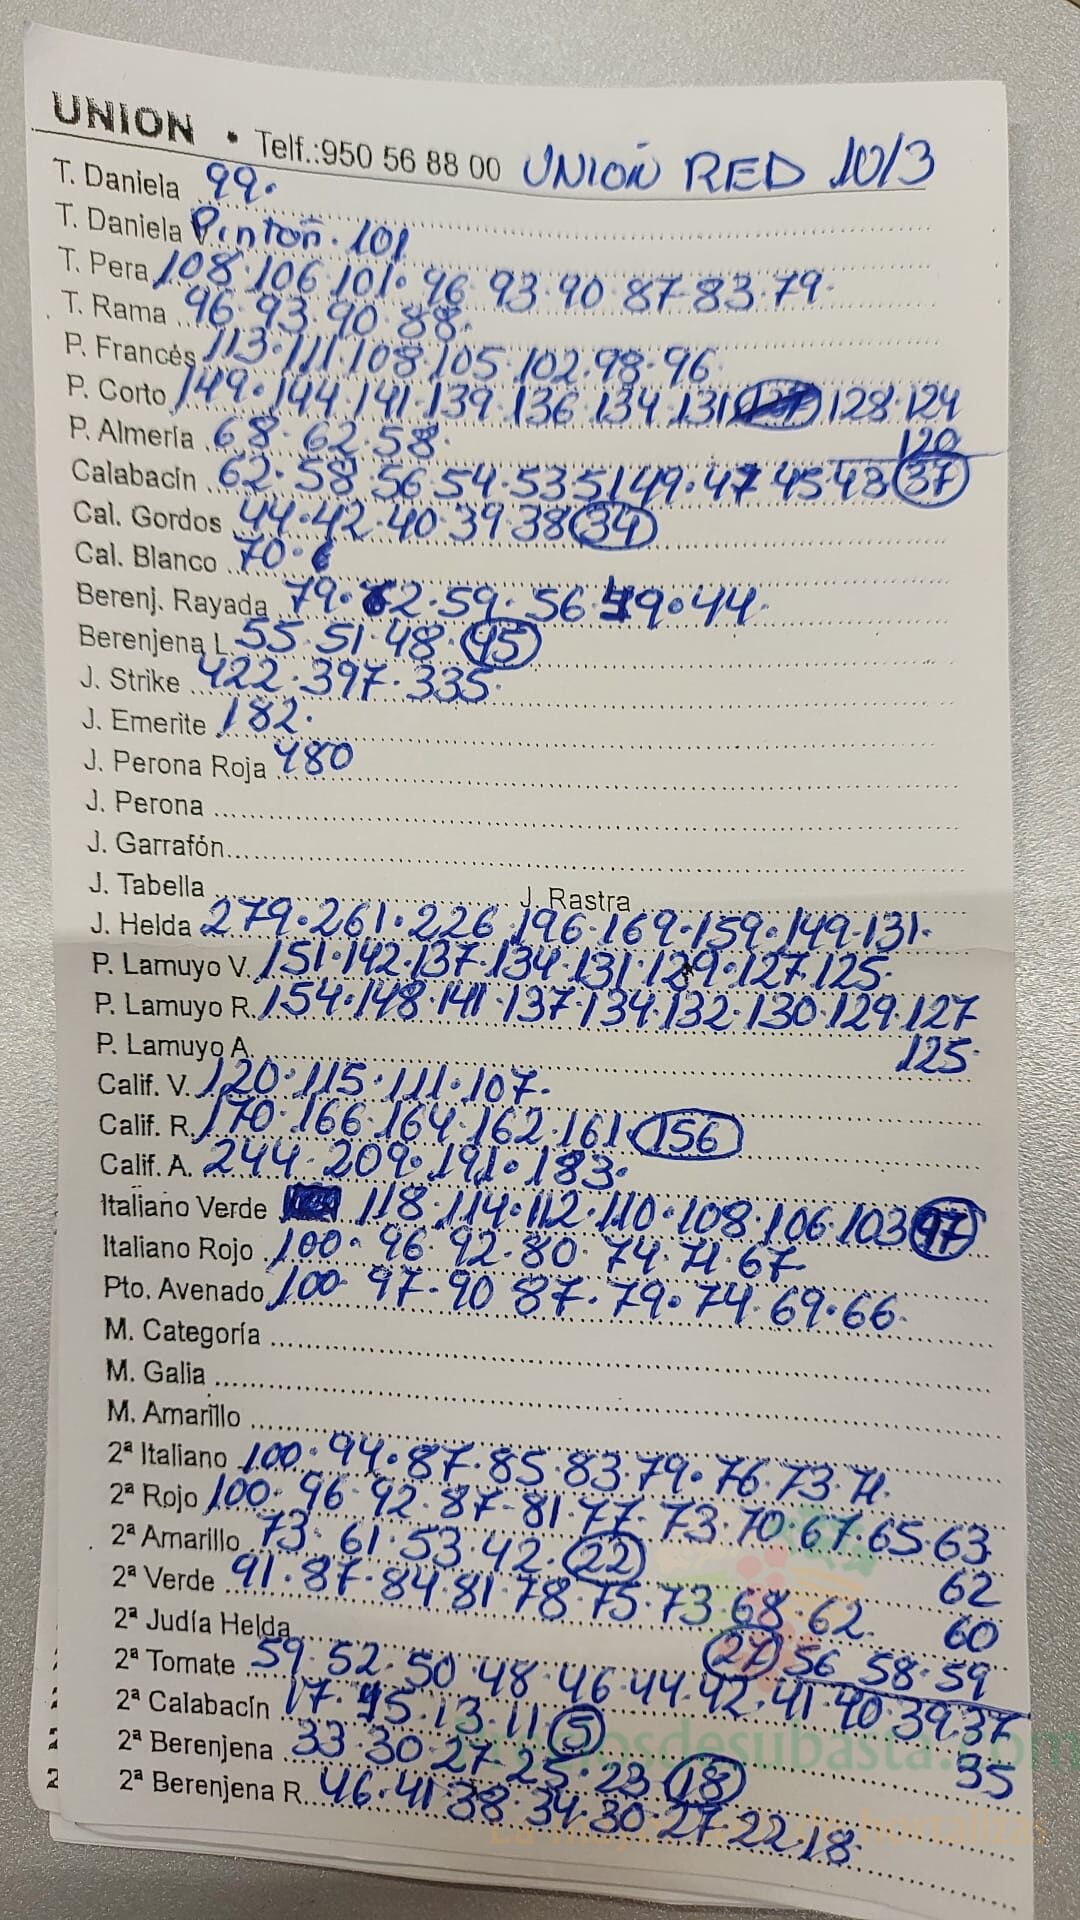 UNION • Telf.:950 56 88 00 UNIOÑ RED 10/3
T. Daniela 99.
T. Daniela V. Pintoñ. 101
T. Pera 108. 106. 101. 96 93. 90 87. 83. 79.
T. Rama 96. 93. 90. 88.
P. Francés 113. 111. 108. 105. 102. 98. 96.
P. Corto 149. 144. 141. 139. 136. 134. 131 128. 124
120
P. Almería 68. 62. 58.
Calabacín 62. 58. 56. 54. 53. 51 49. 47 45. 43 37
Cal. Gordos 44. 42. 40. 39. 38 34
Cal. Blanco 70.
Berenj. Rayada 79. 62. 59. 56. 49. 44.
Berenjena L. 55. 51. 48. 45
J. Strike 422. 397. 335.
J. Emerite 182.
J. Perona Roja 480
J. Perona
J. Garrafón
J. Tabella J. Rastra
J. Helda 279. 261. 226. 196. 169. 159. 149. 131.
P. Lamuyo V. 151. 142. 137. 134. 131. 129. 127. 125.
P. Lamuyo R. 154. 148. 141. 137. 134. 132. 130. 129. 127
125.
P. Lamuyo A.
Calif. V. 120. 115. 111. 107.
Calif. R. 170. 166. 164. 162. 161 156
Calif. A. 244. 209. 191. 183.
Italiano Verde 118. 114. 112. 110. 108. 106. 103 97
Italiano Rojo 100. 96. 92. 80. 74. 71. 67
Pto. Avenado 100. 97. 90 87. 79. 74. 69. 66.
M. Categoría
M. Galia
M. Amarillo
2ª Italiano 100. 94. 87. 85. 83. 79. 76. 73. 71.
2ª Rojo 100. 96. 92. 87. 81. 77. 73. 70. 67. 65. 63
62
60
2ª Amarillo 73. 61. 53. 42. 22
2ª Verde 91. 87. 84. 81. 78. 75. 73. 68. 62.
27 56 58. 59
2ª Judía Helda
2ª Tomate 59. 52. 50. 48. 46. 44. 42. 41. 40. 39. 37
35
2ª Calabacín 17. 15. 13. 11. 5
2ª Berenjena 33. 30. 27. 25. 23 18
2ª Berenjena R. 46. 41. 38. 34. 30. 27. 22. 18.